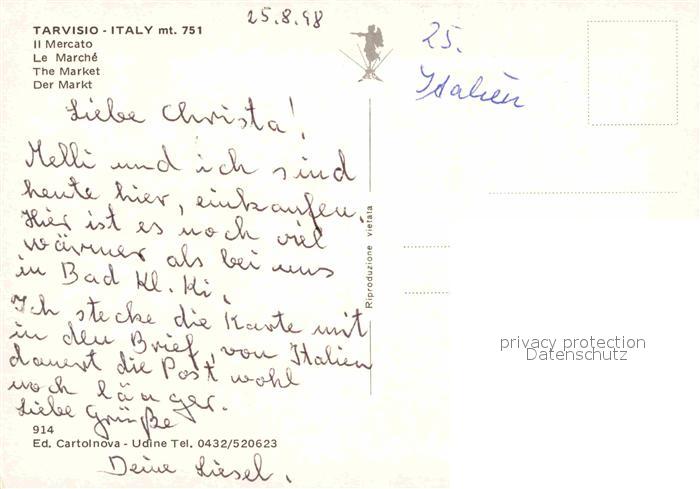 25.8.98
TARVISIO - ITALY mt. 751
Il Mercato
Le Marché
The Market
Der Markt
25.
Italien
Liebe Christa!
Melli und ich sind
heute hier, einkaufen.
Hier ist es noch viel
wärmer als bei uns
in Bad Kl. Ki.
Ich stecke die Karte mit
in den Brief, von Italien
dauert die Post wohl
noch länger.
Liebe Grüße
914
Ed. Cartolnova - Udine Tel. 0432/520623
Deine Liesel.
Riproduzione vietata
privacy protection
Datenschutz